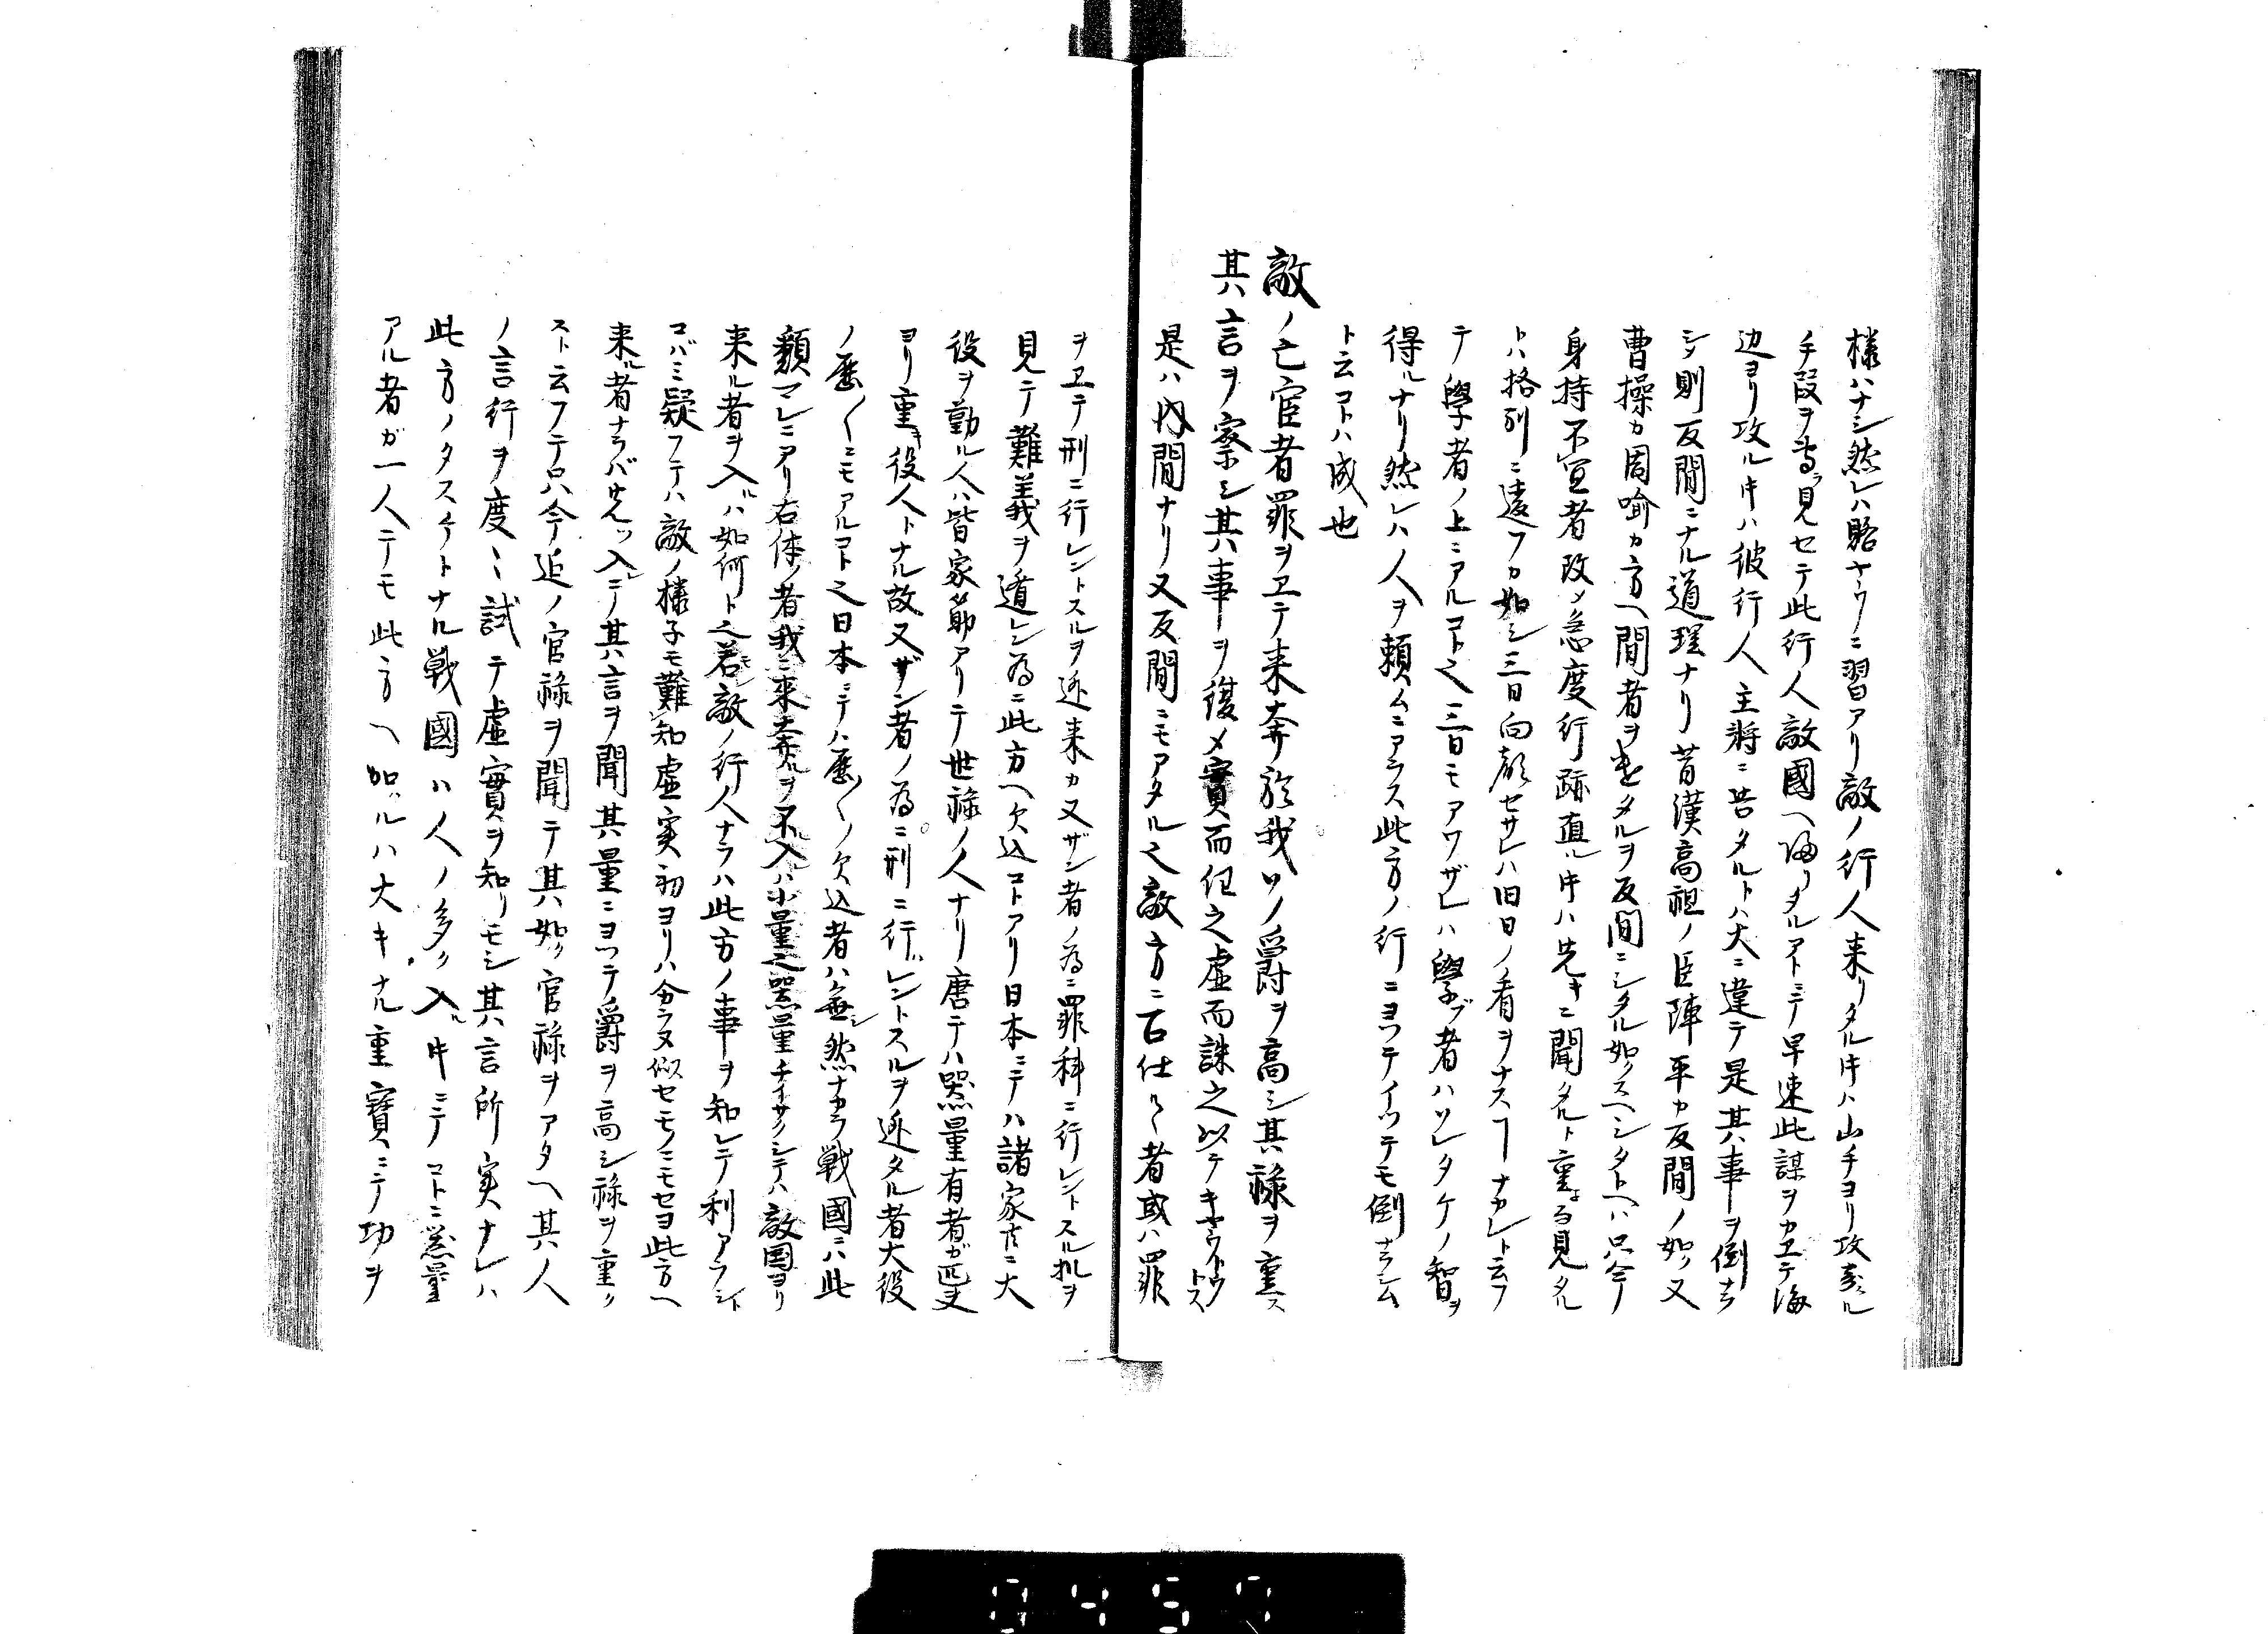 様ハナシ然レハ賂ヤウニ習アリ敵ノ行人来リタル片ハ山チヨリ攻ル
手段ヲ見セテ此行人敵國ヘ帰リタルアトニテ早速此謀ヲカエテ海
辺ヨリ攻ル片ハ彼行人主將ニ告タルトハ大ニ違テ是其事ヲ倒ナラ
シメ則反間ニナル道理ナリ昔漢高祖ノ臣陣平カ反間ノ如ク又
曹操カ周喩カ方ヘ間者ヲ遣タルヲ反間ニシタル如クスヘシタトヘハ只今
身持不宜者改メ急度行跡直ル片ハ先キニ聞タルト重テ見タル
トハ格別ニ違フカ如シ三日向顔セサレハ旧日ノ看ヲナスヿナカレト云フ
テ學者ノ上ニアルコト之三日モアワザレハ學ブ者ハソレタケノ智ヲ
得ルナリ然レハ人ヲ頼ムニアラス此方ノ行ニヨツテイツテモ倒ナラシム
ト云コトハ成也
敵ノ亡宦者罪ヲヱテ来奔於我ソノ爵ヲ高シ其禄ヲ重ス
其言ヲ察シ其事ヲ復メ實而任之虚而誅之以テキヤウトウトス
是ハ内間ナリ又反間ニモアタル之敵方ニ召仕ルヽ者或ハ罪
ヲヱテ刑ニ行レントスルヲ逃来カ又ザン者ノ為ニ罪科ニ行レントスル扎ヲ
見テ難義ヲ遁レン為ニ此方ヘ欠込コトアリ日本ニテハ諸家共ニ大
役ヲ勤ル人ハ皆家節アリテ世禄ノ人ナリ唐テハ器量有者ガ匹夫
ヨリ重キ役人トナル故又ザン者ノ為ニ刑ニ行ハレントスルヲ逃タル者大役
ノ歴〳〵ニモアルコト之日本ニテハ歴〳〵ノ欠込者ハ無シ然ナカラ戦國ニハ此
類マレニアリ右体ノ者我ニ来奔ルヲ不入ハ小量之器量チイサクシテハ敵国ヨリ
来ル者ヲ入ルハ如何ト之若モシ敵ノ行人ナラハ此方ノ事ヲ知レテ利アラシト
コバミ疑フテハ敵ノ様子モ難知虚実初ヨリハ分ラヌ似セモノニモセヨ此方ヘ
来ル者ナラバ先ツ入レテ其言ヲ聞其量ニヨツテ爵ヲ高シ禄ヲ重ク
スト云フテ只今迄ノ官禄ヲ聞テ其如ク官禄ヲアタヘ其人
ノ言行ヲ度〻試テ虚實ヲ知リモシ其言所実ナレハ
此方ノタスケトナル戦國ハ人ノ多ク入ル片ニテコトニ器量
アル者ガ一人テモ此方ヘ加ハルハ大キナル重寳ニテ功ヲ